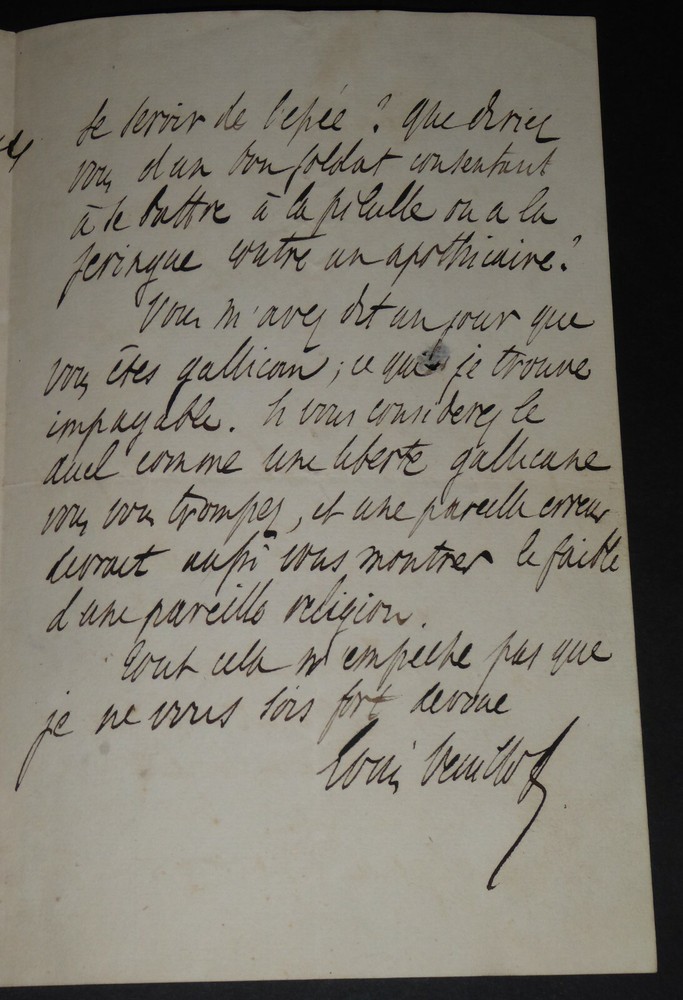 se servir de l'epée ? que diriez
vous d'un bon soldat consentant
à se battre à la pilulle ou a la
seringue contre un apothicaire ?
Vous m'avez dit un jour que
vous êtes gallican ; ce que je trouve
impayable. Si vous considerez le
duel comme une liberté gallicane
vous vous trompez, et une pareille erreur
devrait aussi vous montrer le faible
d'une pareille religion.
Tout cela n'empeche pas que
je ne vous sois fort devoué
Louis Veuillot